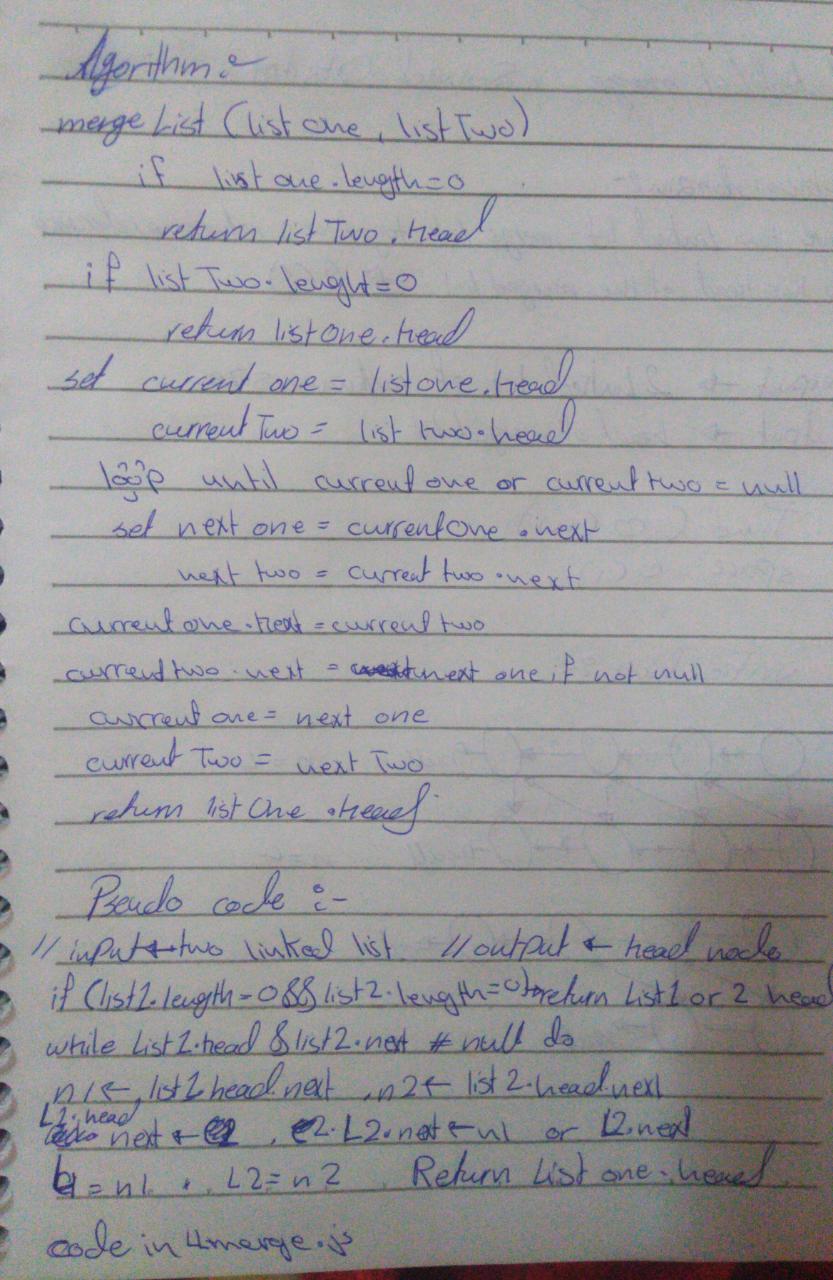 Algorithm :-
merge List (list one, list Two)
if list one.length=0
return list Two.head
if list Two.lenght=0
return list One.head
set current one = list one.head
current Two = list two.head
loop until current one or current two = null
set next one = current One.next
next two = current two.next
current one.next = current two
current two.next = next one if not null
current one = next one
current Two = next Two
return list One.head
Pseudo code :-
// input ← two linked list // output ← head node
if (list1.length=0 && list2.length=0) → return List1 or 2 head
while List1.head & list2.next ≠ null do
n1 ← list1 head.next, n2 ← list2.head.next
L2.head
next ← L2.next ← n1 or L2.next
= n1, L2 = n2 Return List one.head
code in 4merge.js